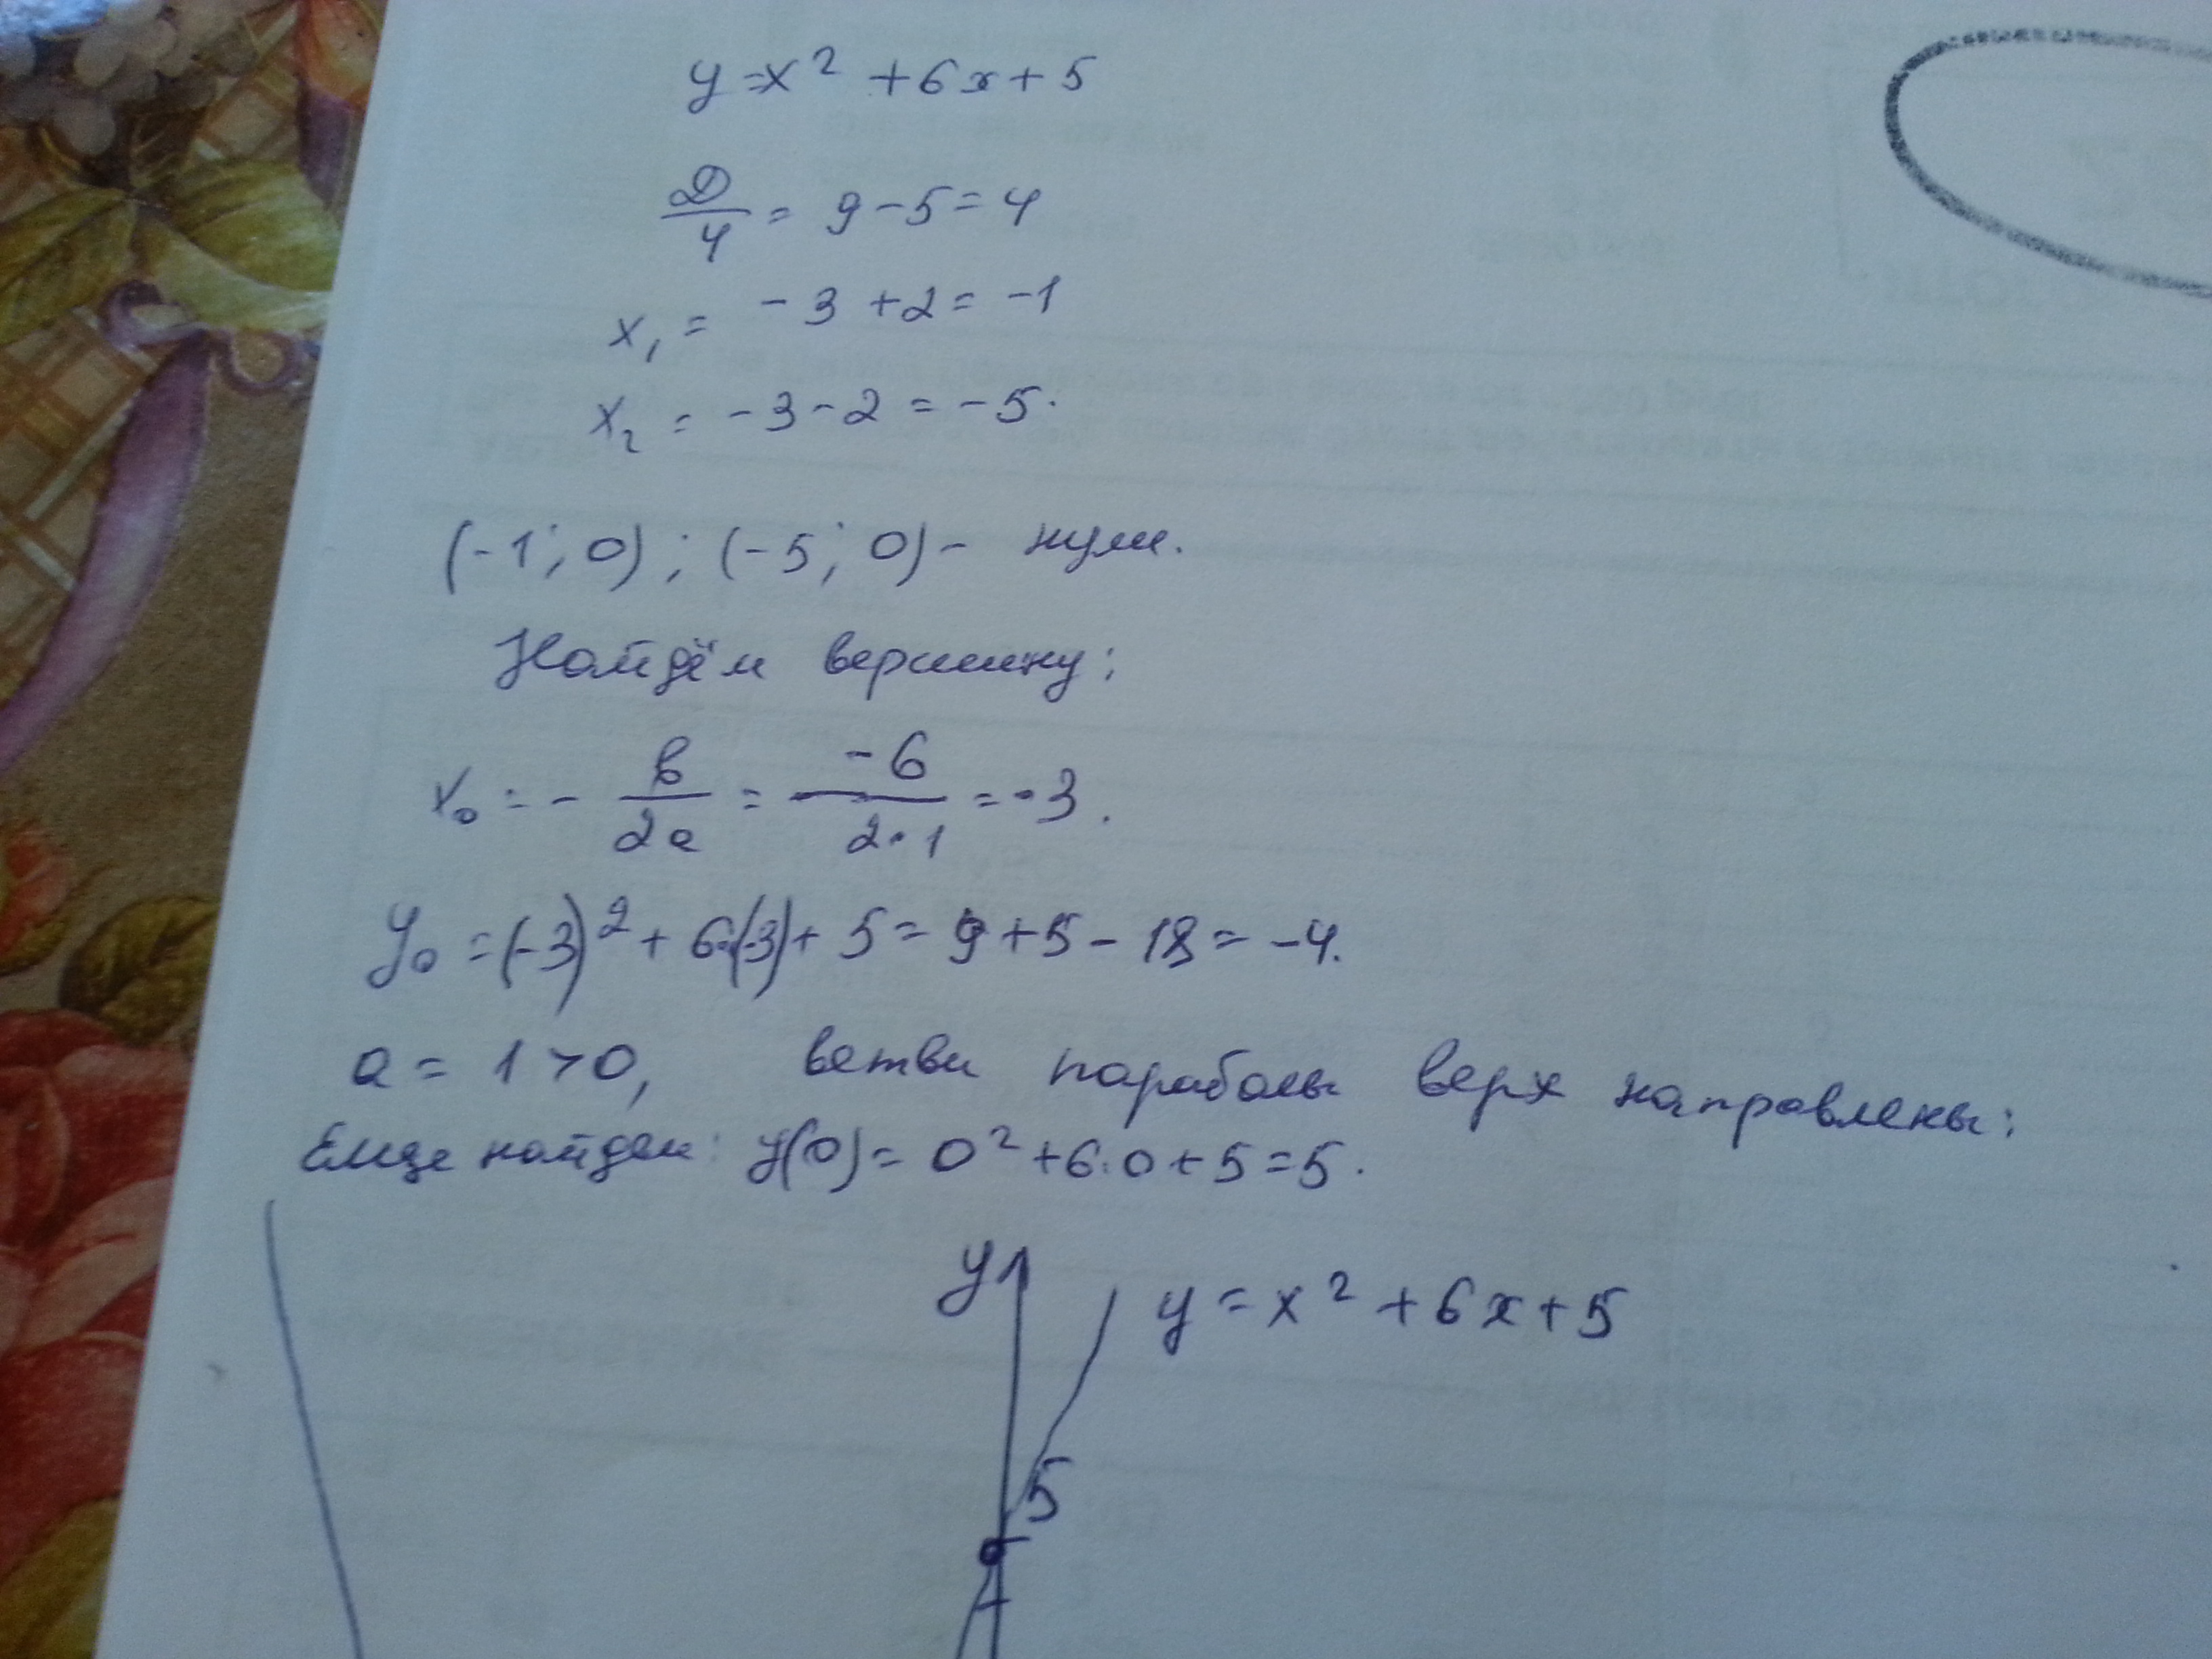 y=x² +6x+5
D/4 = 9-5=4
x₁ = -3+2=-1
x₂ = -3-2=-5.
(-1; 0); (-5; 0)- нули.
Найдём вершину:
x₀ = - b/2a = -6/2·1 = -3.
y₀ =(-3)² + 6·(-3)+ 5= 9+5-18= -4.
a = 1>0, ветви параболы вверх направлены:
Еще найдем: y(0)= 0²+6·0+5=5.
y
y=x²+6x+5
5